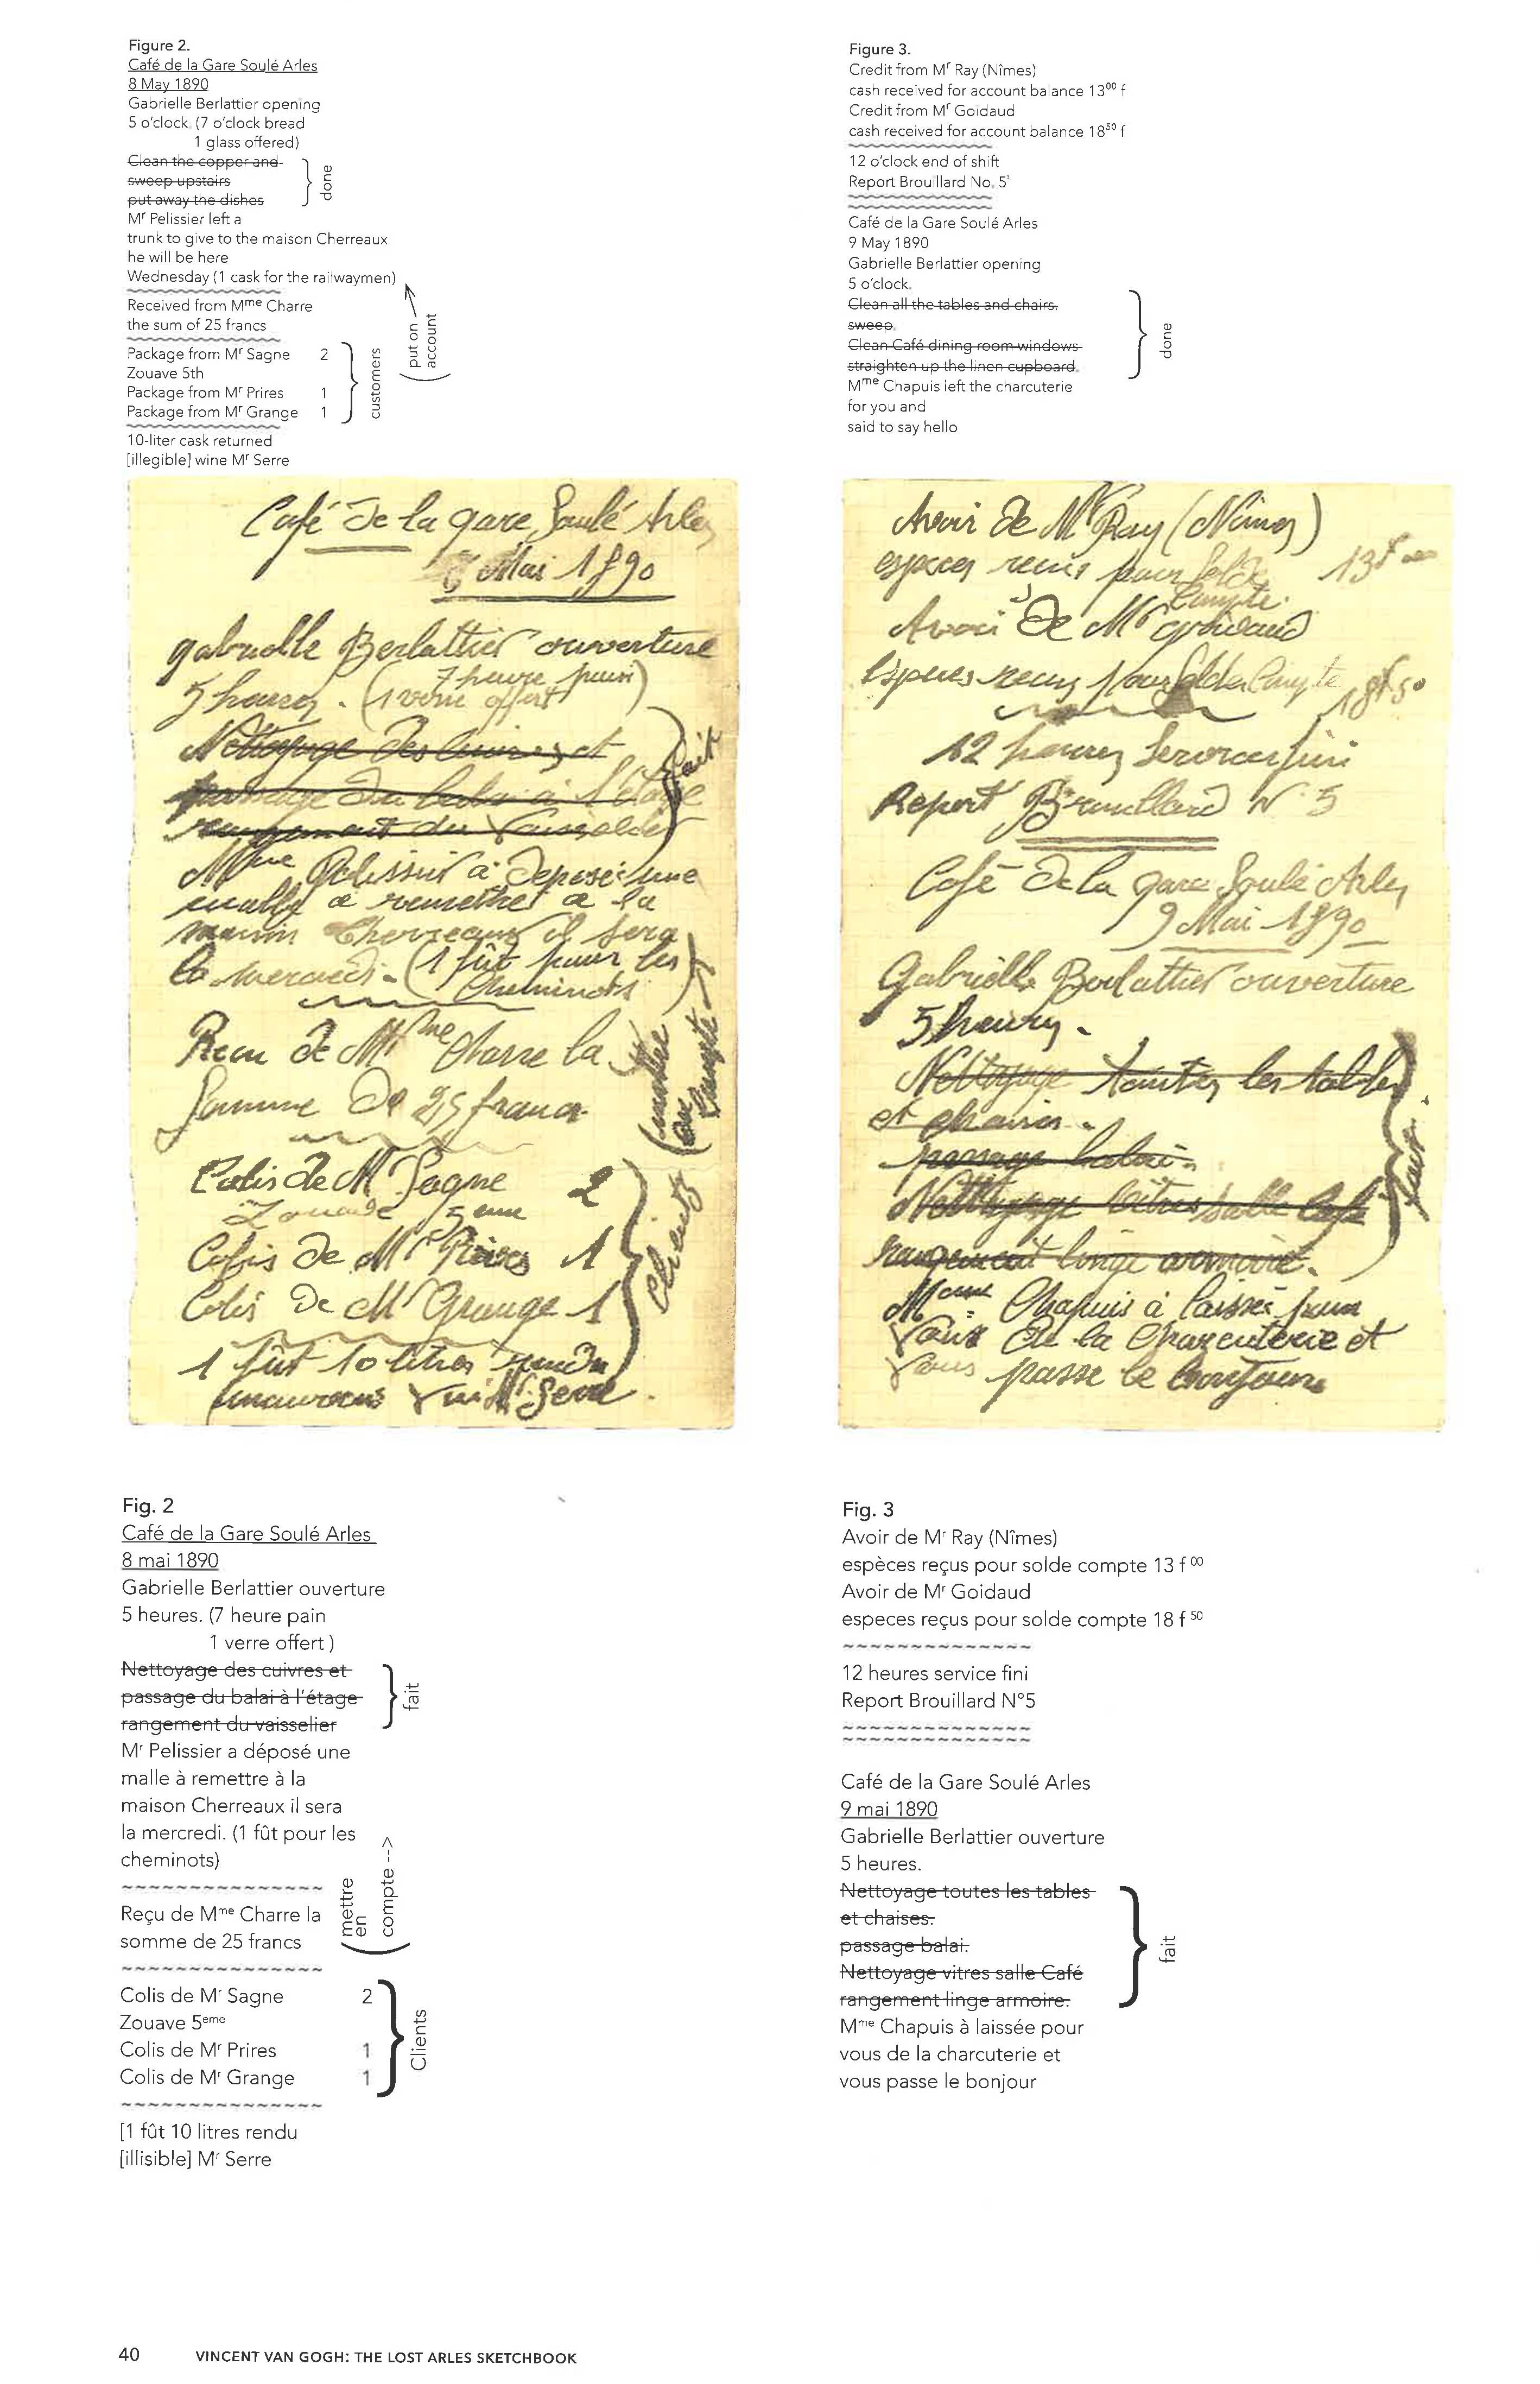 Figure 2.
Café de la Gare Soulé Arles
8 May 1890
Gabrielle Berlattier opening
5 o'clock. (7 o'clock bread
1 glass offered)
Clean the copper and
sweep upstairs
put away the dishes
done
Mr Pelissier left a
trunk to give to the maison Cherreaux
he will be here
Wednesday (1 cask for the railwaymen)
Received from Mme Charre
the sum of 25 francs
put on
account
Package from Mr Sagne 2
Zouave 5th
Package from Mr Prires 1
Package from Mr Grange 1
customers
10-liter cask returned
[illegible] wine Mr Serre
Figure 3.
Credit from Mr Ray (Nîmes)
cash received for account balance 13⁰⁰ f
Credit from Mr Goidaud
cash received for account balance 18⁵⁰ f
12 o'clock end of shift
Report Brouillard No. 5
Café de la Gare Soulé Arles
9 May 1890
Gabrielle Berlattier opening
5 o'clock.
Clean all the tables and chairs.
sweep.
Clean Café dining room windows
straighten up the linen cupboard.
done
Mme Chapuis left the charcuterie
for you and
said to say hello
Café de la gare Soulé Arles
Mai 1890
gabrielle Berlattier ouverture
7 heure pain)
5 heures. (1 verre offert
Nettoyage des cuivres et
passage du balai à l'étage
rangement du vaisselier
fait
Mme Pelissier à déposé une
malle à remettre à la
maison Cherreaux il sera
la mercredi. (1 fût pour les
cheminots
Recu de Mme Charre la
Somme de 25 francs
(mettre
au
compte
Colis de Mr Sagne 2
Zouave 5eme
Colis de Mr Prires 1
Colis de Mr Grange 1
clients
1 fût 10 litres rendu
vin Mr Serre
Avoir de Mr Ray (Nimes)
espèces recus pour Solde 13f 00
Compte.
Avoir de Mr goidaud
Espèces recus pour Solde Compte 18f50
12 heures Service fini
Report Brouillard N° 5
Café de la gare Soulé Arles
9 Mai 1890
Gabrielle Berlattier ouverture
5 heures.
Nettoyage toutes les tables
et chaises.
passage balai.
Nettoyage vitres salle Café
rangement linge armoire.
fait
Meme Chapuis à laissée pour
Vous de la Charcuterie et
Vous passe le bonjour
Fig. 2
Café de la Gare Soulé Arles
8 mai 1890
Gabrielle Berlattier ouverture
5 heures. (7 heure pain
1 verre offert )
Nettoyage des cuivres et
passage du balai à l'étage
rangement du vaisselier
fait
Mr Pelissier a déposé une
malle à remettre à la
maison Cherreaux il sera
la mercredi. (1 fût pour les
cheminots)
Reçu de Mme Charre la
somme de 25 francs
mettre
en
compte -->
Colis de Mr Sagne 2
Zouave 5eme
Colis de Mr Prires 1
Colis de Mr Grange 1
Clients
[1 fût 10 litres rendu
[illisible] Mr Serre
Fig. 3
Avoir de Mr Ray (Nîmes)
espèces reçus pour solde compte 13 f ⁰⁰
Avoir de Mr Goidaud
especes reçus pour solde compte 18 f ⁵⁰
12 heures service fini
Report Brouillard N°5
Café de la Gare Soulé Arles
9 mai 1890
Gabrielle Berlattier ouverture
5 heures.
Nettoyage toutes les tables
et chaises.
passage balai.
Nettoyage vitres salle Café
rangement linge armoire.
fait
Mme Chapuis à laissée pour
vous de la charcuterie et
vous passe le bonjour
40 VINCENT VAN GOGH: THE LOST ARLES SKETCHBOOK